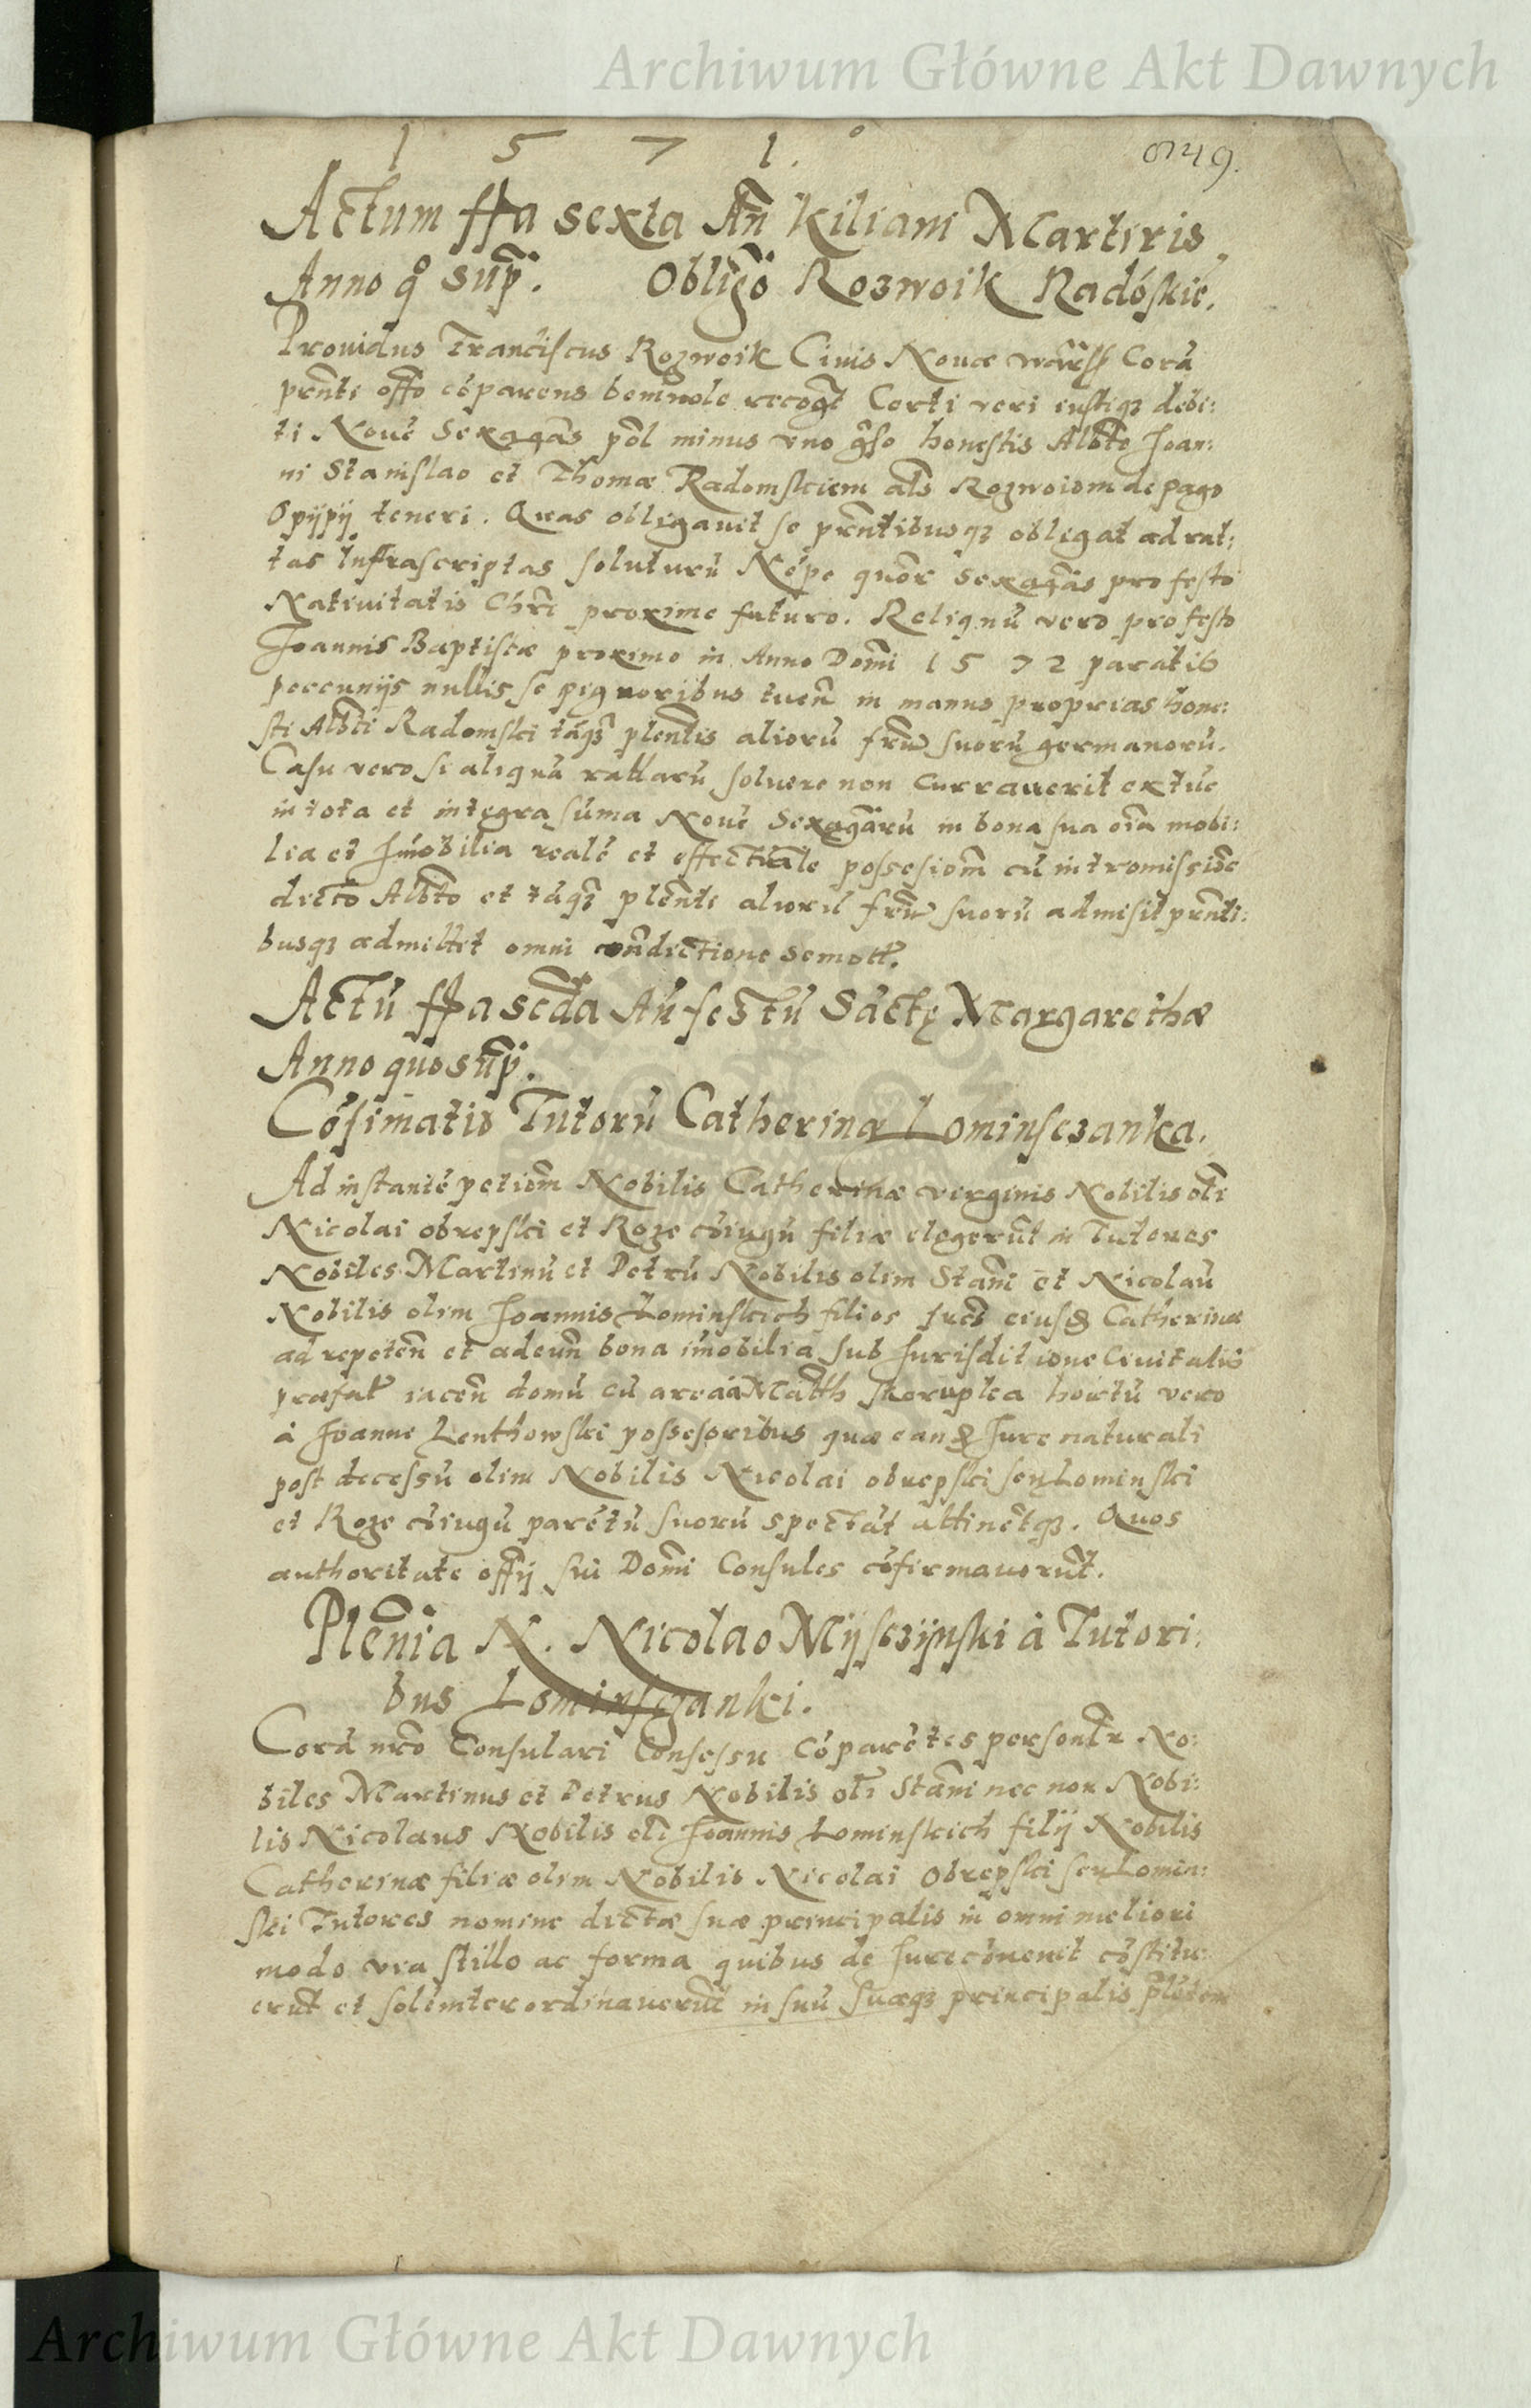 Archiwum Główne Akt Dawnych
1 5 7 1.
749.
Actum ffa sexta An Kiliani Martiris
Anno qo sup. Obligo Rozwoik Radoskie.
Prouidus Franciscus Rozwoik Ciuis Nouæ warss Corã
prnti offo cõparens beniuole recogt Certi veri iustiqz debi:
ti Nouē Sexagas pol minus vno gso honestis Albto Joan:
ni Stanislao et Thomæ Radomskiem als Rozwoiom de pago
Opijpij teneri. Quas obligauit se prntibusqz obligat ad rat:
tas Infrascriptas soluturũ Nēpe quor Sexagas pro festo
Natiuitatis Chri proxime futuro. Reliquũ vero pro festo
Joannis Baptistæ proximo in Anno Domi 1572 paratis
peccunijs nullis se pignoribus tuen in manus proprias hone:
sti Albti Radomski tãqz plentis aliorũ frũ suorũ germanorũ.
Casu vero si aliquã rattarũ soluere non currauerit extūc
in tota et integra sũma Nouē Sexagarũ in bona sua oia mobi:
lia et Jmobilia realē et effectuale possesiom cũ intromissioe
dicto Albto et tãqz plenti aliorũ frũ suorũ admisit prnti:
busqz admittit omni condictione semott.
Actũ ffa scda An festũ Sãctę Margarethæ
Anno quo sup.
Cõfirmatio Tutorũ Catherinæ Lominsczanka.
Ad instantē petiom Nobilis Catherinæ virginis Nobilis oli
Nicolai obrepski et Roze cõiugũ filiæ elegerũt in Tutores
Nobiles Martinũ et Petrũ Nobilis olim Stani et Nicolaũ
Nobilis olim Joannis Lominskich filios fres eiusd Catherinæ
ad repeten et adeun bona imobilia sub Jurisditione Ciuitatis
præfat iacen domũ cũ area a Matth skorupka hortũ vero
à Joanne Lenthowski possessoribus quæ eand Jure naturali
post decessũ olim Nobilis Nicolai obrepski seu Lominski
et Roze cõiugũ parētũ suorũ spectãt attinētqz. Quos
authoritate offij sui Domi Consules cõfirmauerũt.
Plenia N. Nicolao Mijsczijnski à Tutori:
bus Lominsczanki.
Corã nro Consulari Consessu Cõparētes personlr No:
biles Martinus et Petrus Nobilis oli Stani nec non Nobi:
lis Nicolaus Nobilis oli Joannis Lominskich filij Nobilis
Catherinæ filiæ olim Nobilis Nicolai Obrepski seu Lomin:
ski Tutores nomine dictæ suæ principalis in omni meliori
modo via stillo ac forma quibus de Jure cõuenit cõstitu:
erũt et solēniter ordinauerũt in suũ suæqz principalis
Archiwum Główne Akt Dawnych